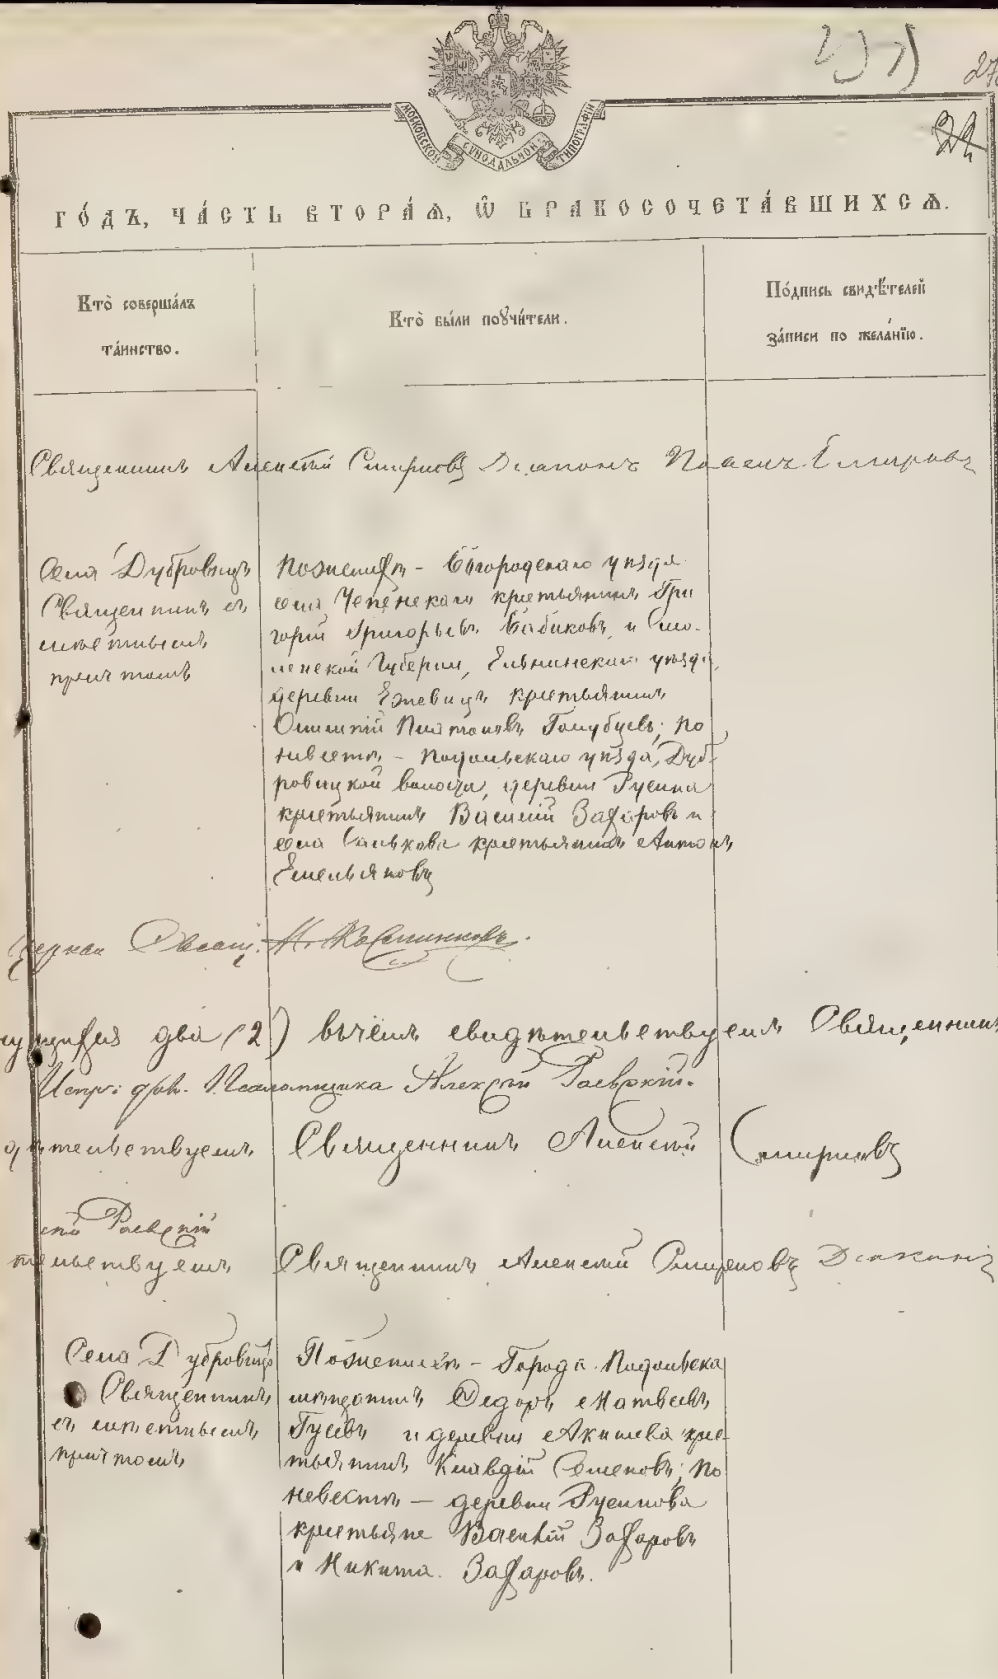 МОСКОВСКОЙ СѴНОДАЛЬНОЙ ТИПОГРАФІИ
ГО́ДЪ, ЧА́СТЬ ВТОРА́Ѧ, Ѽ БРАКОСОЧЕТА́ВШИХСѦ.
Кто̀ соверша́лъ
та́инство.
Кто̀ бы́ли порꙋчи́тели.
По́дпись свидѣ́телей
за́писи по жела́нїю.
Священникъ Алексѣй Смирновъ Діаконъ Павелъ Смирновъ
Села Дубровицъ
Священникъ съ
мѣстнымъ
причтомъ
По женихѣ – Богородскаго уѣзда
села крестьянинъ Гри
горій Григорьевъ Бабиковъ, и Смо-
ленской Губерніи, Ельнинскаго уѣзда,
деревни крестьянинъ
Платоновъ Голубцовъ; по
невѣстѣ – Подольскаго уѣзда, Дуб-
ровицкой волости, деревни Русина
крестьянинъ Василій Захаровъ и
села Салькова крестьянинъ Антонъ
Емельяновъ
Священникъ
Испр. дол. Псаломщика Алексѣй Раевскій.
дѣтельствуемъ Священникъ Алексѣй Смирновъ
Раевскій
тельствуемъ Священникъ Алексѣй Смирновъ Діаконъ
Села Дубровицъ
Священникъ
съ мѣстнымъ
причтомъ
По женихѣ – Города Подольска
мѣщанинъ Ѳедоръ Матвеевъ
Гусевъ и деревни Акишева кре-
стьянинъ Клавдій Семеновъ; по
невестѣ — деревни Русинова
крестьяне Василій Захаровъ
и Никита Захаровъ.